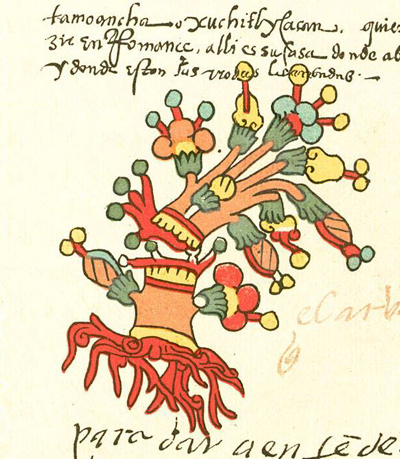 tamoancha o xuchitlycacan . quie
zir en Romance, alli es su casa donde ab
y donde estan sus rrosas levantadas .
el arb
para dar a en tēde